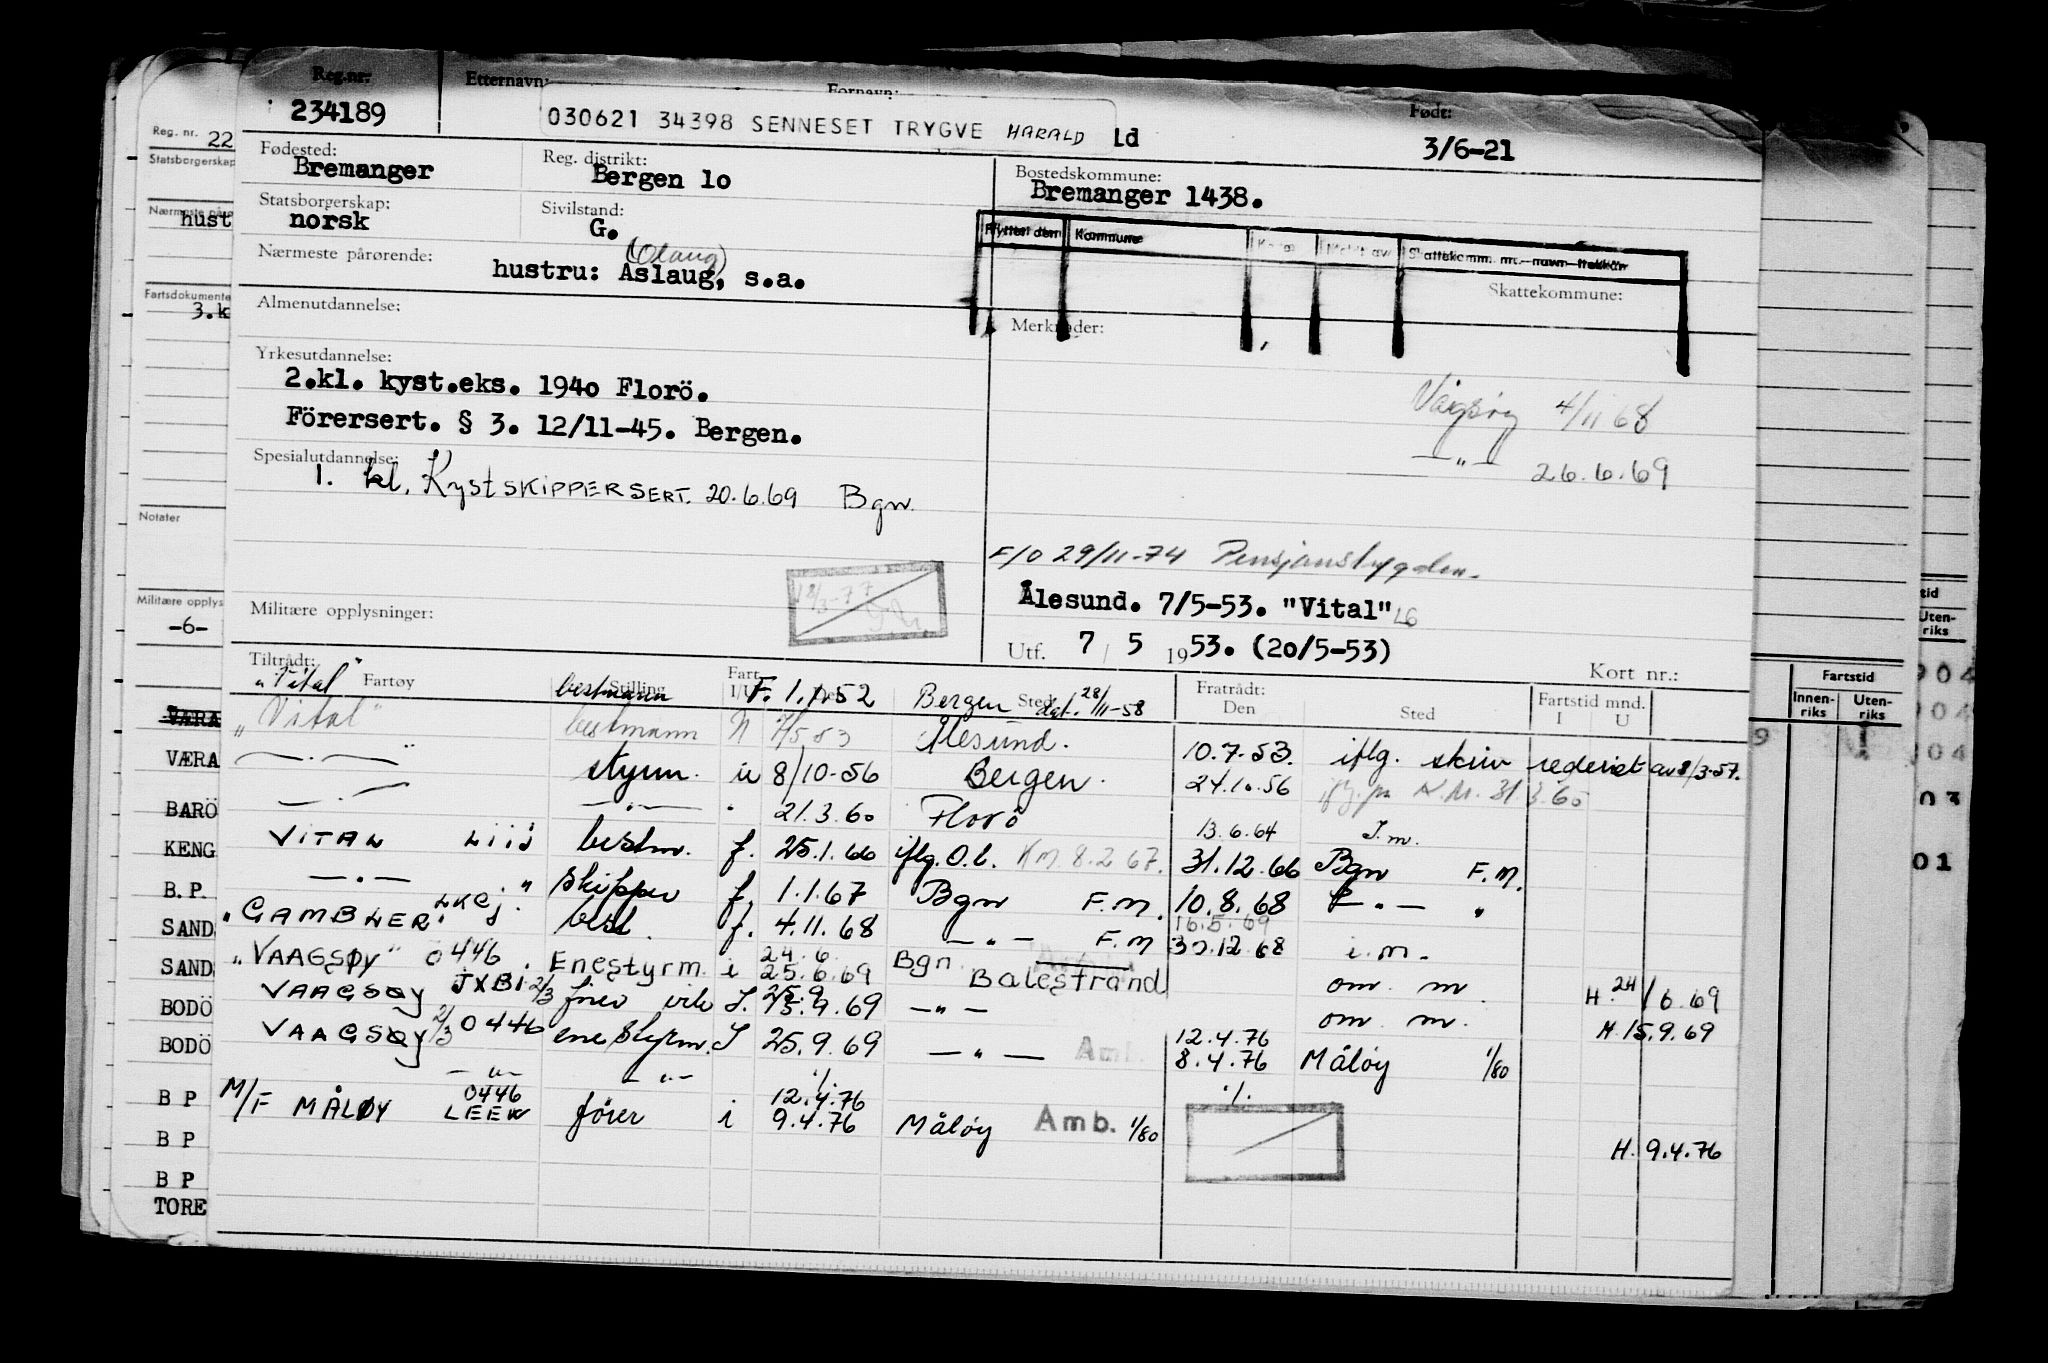 Reg.nr.
234189
Etternavn:
Fornavn:
Født:
030621 34398 SENNESET TRYGVE HARALD Ld
3/6-21
Fødested:
Bremanger
Reg. distrikt:
Bergen 1o
Bostedskommune:
Bremanger 1438.
Statsborgerskap:
norsk
Sivilstand:
G.
Flyttet den Kommune
Skattekomm. nr. - navn - trekkår
Nærmeste pårørende:
(Olaug)
hustru: Aslaug, s.a.
Skattekommune:
Almenutdannelse:
Merknader:
Yrkesutdannelse:
2.kl. kyst.eks. 194o Florö.
Förersert. § 3. 12/11-45. Bergen.
Vågsøy 4/11 68
—"— 26.6.69
Spesialutdannelse:
1. kl. Kystskippersert. 20.6.69 Bgn.
F/O 29/11-74 Pensjonstrygden.
Ålesund. 7/5-53. "Vital" LG
Militære opplysninger:
Utf. 7/5 1953. (20/5-53)
Kort nr.:
Tiltrådt:
Fartøy
Stilling
Fart I/U
Sted
Fratrådt:
Den
Sted
Fartstid mnd.
I U
"Vital" bestmann F. 1.1.52 Bergen dat. 28/11-58
"Vital" bestmann N 7/5 53 Ålesund. 10.7.53. iflg. skriv rederiet av 8/3-57.
—"— styrm. u 8/10-56 Bergen. 24.10.56
—"— —"— " 21.3.60 Florö 13.6.64 I.m.
VITAL LIIJ bestm. f. 25.1.66 iflg. O.l. Km. 8.2 67. 31.12.66 Bgn F.M.
—"— " skipper f. 1.1.67 Bgn F.M. 10.8.68 —"— "
"GAMBLER" LKCJ. best. f. 4.11.68 —"— F.M 30.12.68 i.m.
16.5.69
"VAAGSØY" 0446. Enestyrm. i 24.6 25.6.69 Bgn. Balestrand om. m. H. 24/6.69
VAAGSØY JXBI 2/3 fører vik I. 15.9.69 —"— om. m. H. 15.9.69
VAAGSØY 2/3 0446 enestyrm. I 25.9.69 —"— Amb. 12.4.76 8.4.76 Måløy 1/80
—"— —"— ./.
M/F MÅLØY 0446 LEEW fører i 12.4.76 9.4.76 Måløy Amb. 1/80 ./. H. 9.4.76
Reg. nr.
22
Statsborgerskap
Nærmeste på
hust
Fartsdokumente
3.k
Notater
Militære opplys
-6-
VÆRA
VÆRA
BARÖ
KENG
B.P.
SAND
SAND
BODÖ
BODÖ
B P
B P
B P
TORE
Uten-
riks
Fartstid
Innen-
riks
Uten-
riks